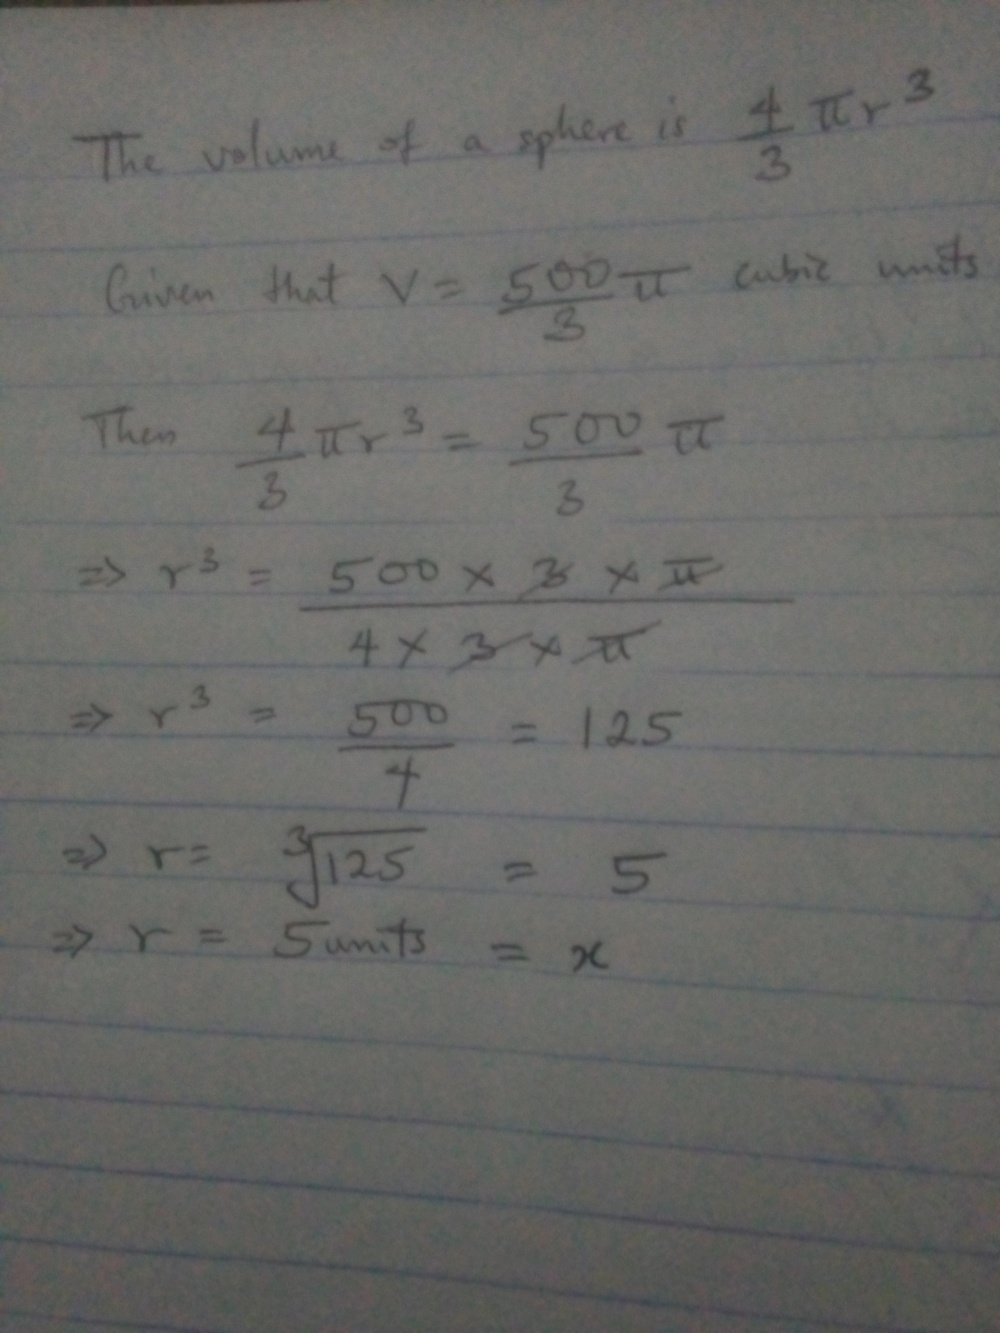 The volume of a sphere is 4/3 πr³
Given that V = 500/3 π cubic units
Then 4/3 πr³ = 500/3 π
⇒ r³ = (500 × 3 × π)/(4 × 3 × π)
⇒ r³ = 500/4 = 125
⇒ r = ∛125 = 5
⇒ r = 5 units = x